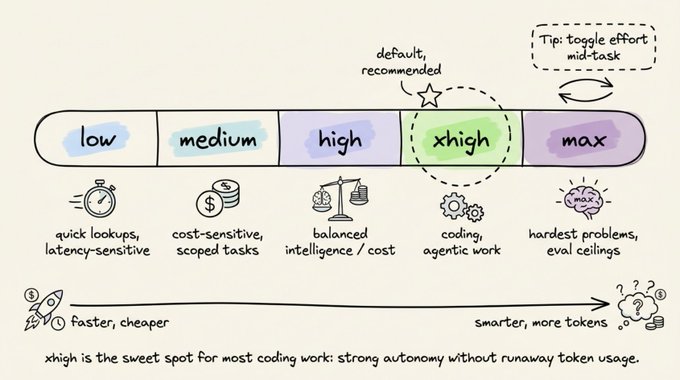 Tip: toggle effort
mid-task
default,
recommended
low
medium
high
xhigh
max
$
$
max
quick lookups,
latency-sensitive
cost-sensitive,
scoped tasks
balanced
intelligence / cost
coding,
agentic work
hardest problems,
eval ceilings
$
faster, cheaper
smarter, more tokens
? ? ?
?
$
xhigh is the sweet spot for most coding work: strong autonomy without runaway token usage.